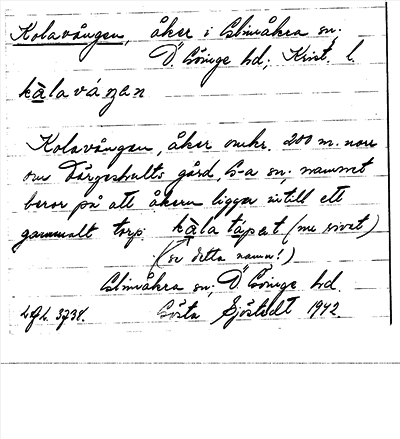 Kolavången, åker i Glimåkra sn.
Ö. Göinge hd; Krist. l.
kålavánan
Kolavången, åker omkr. 200 m. norr
om Vårgeshults gård, G-a sn. namnet
beror på att åkern ligger intill ett
gammalt torp kåla tåpet (nu rivet)
(se detta namn!)
Glimåkra sn; Ö Göinge hd.
Gösta Sjöstedt 1942.